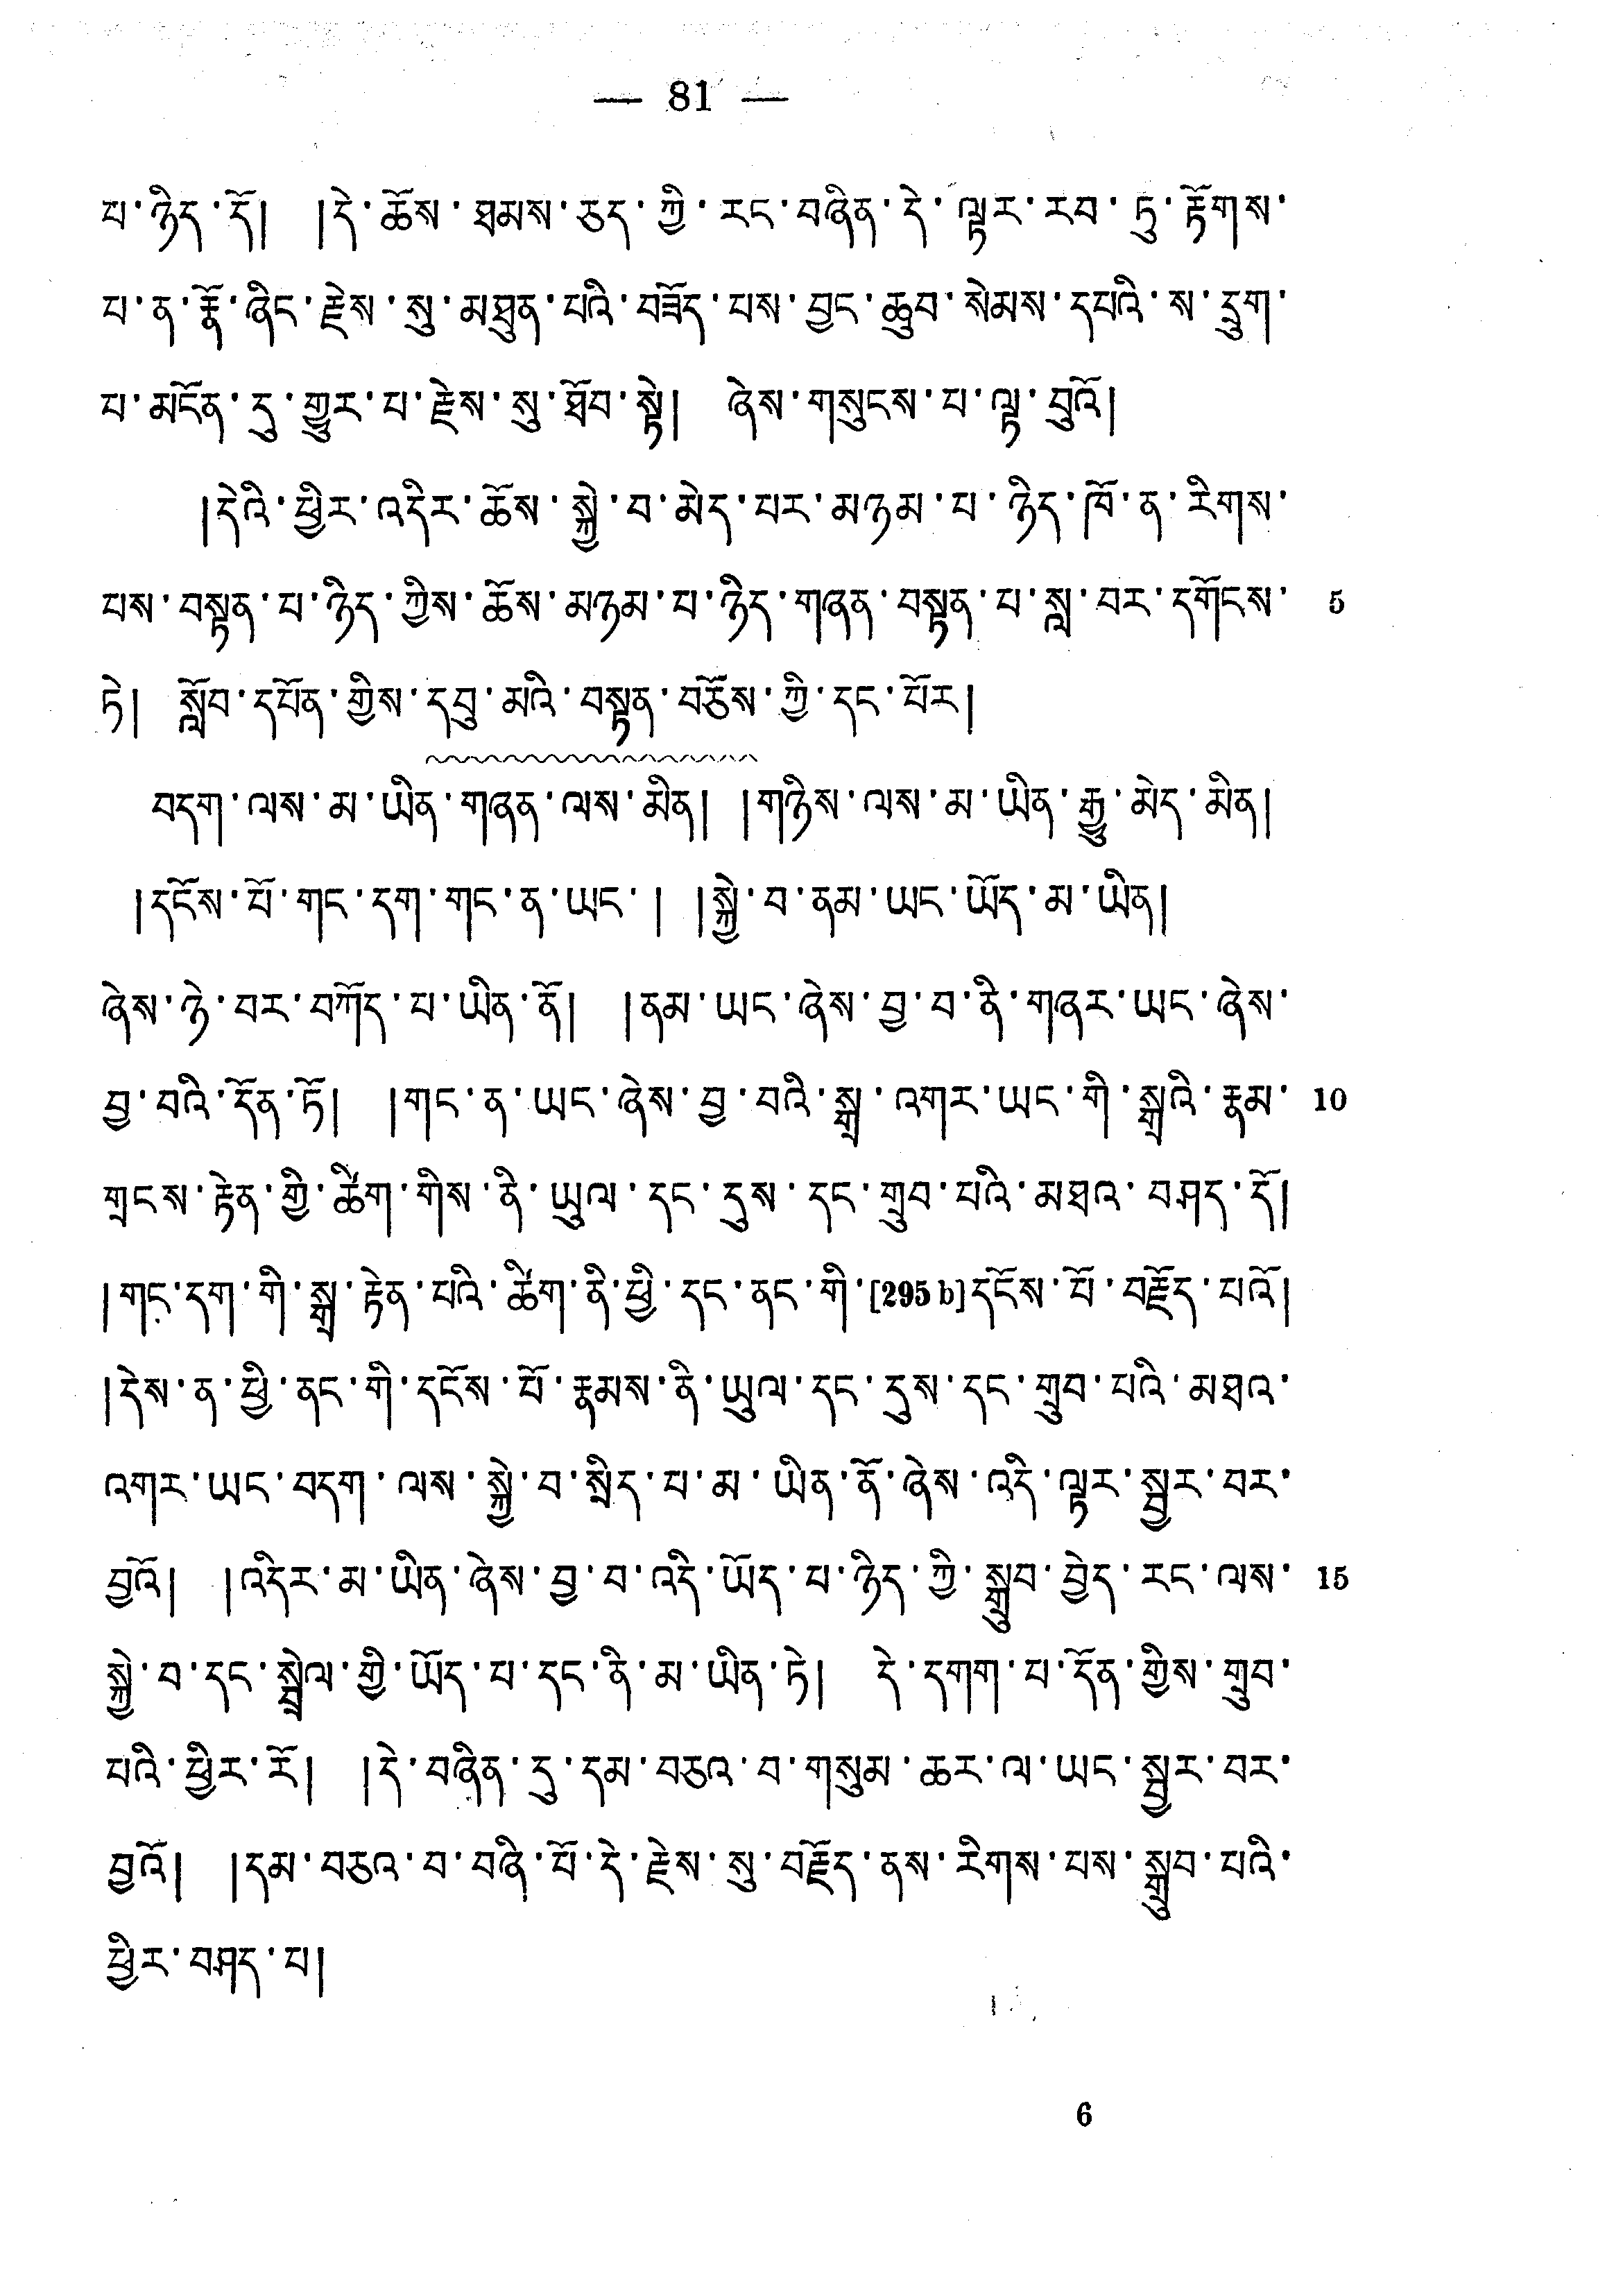 — 81 —
པ་ཉིད་དོ། །དེ་ཆོས་ཐམས་ཅད་ཀྱི་རང་བཞིན་དེ་ལྟར་རབ་ཏུ་རྟོགས་
པ་ན་རྣོ་ཞིང་རྗེས་སུ་མཐུན་པའི་བཟོད་པས་བྱང་ཆུབ་སེམས་དཔའི་ས་དྲུག་
པ་མངོན་དུ་གྱུར་པ་རྗེས་སུ་ཐོབ་སྟེ། ཞེས་གསུངས་པ་ལྟ་བུའོ།
།དེའི་ཕྱིར་འདིར་ཆོས་སྐྱེ་བ་མེད་པར་མཉམ་པ་ཉིད་ཁོ་ན་རིགས་
པས་བསྟན་པ་ཉིད་ཀྱིས་ཆོས་མཉམ་པ་ཉིད་གཞན་བསྟན་པ་སླ་བར་དགོངས་ 5
ཏེ། སློབ་དཔོན་གྱིས་དབུ་མའི་བསྟན་བཅོས་ཀྱི་དང་པོར།
བདག་ལས་མ་ཡིན་གཞན་ལས་མིན། །གཉིས་ལས་མ་ཡིན་རྒྱུ་མེད་མིན།
།དངོས་པོ་གང་དག་གང་ན་ཡང་། །སྐྱེ་བ་ནམ་ཡང་ཡོད་མ་ཡིན།
ཞེས་ཉེ་བར་བཀོད་པ་ཡིན་ནོ། །ནམ་ཡང་ཞེས་བྱ་བ་ནི་གཞར་ཡང་ཞེས་
བྱ་བའི་དོན་ཏོ། །གང་ན་ཡང་ཞེས་བྱ་བའི་སྒྲ་འགར་ཡང་གི་སྒྲའི་རྣམ་ 10
གྲངས་རྟེན་གྱི་ཚིག་གིས་ནི་ཡུལ་དང་དུས་དང་གྲུབ་པའི་མཐའ་བཤད་དོ།
།གང་དག་གི་སྒྲ་རྟེན་པའི་ཚིག་ནི་ཕྱི་དང་ནང་གི་[295 b]དངོས་པོ་བརྗོད་པའོ།
།དེས་ན་ཕྱི་ནང་གི་དངོས་པོ་རྣམས་ནི་ཡུལ་དང་དུས་དང་གྲུབ་པའི་མཐའ་
འགར་ཡང་བདག་ལས་སྐྱེ་བ་སྲིད་པ་མ་ཡིན་ནོ་ཞེས་འདི་ལྟར་སྦྱར་བར་
བྱའོ། །འདིར་མ་ཡིན་ཞེས་བྱ་བ་འདི་ཡོད་པ་ཉིད་ཀྱི་སྒྲུབ་བྱེད་རང་ལས་ 15
སྐྱེ་བ་དང་སྦྲེལ་གྱི་ཡོད་པ་དང་ནི་མ་ཡིན་ཏེ། དེ་དགག་པ་དོན་གྱིས་གྲུབ་
པའི་ཕྱིར་རོ། །དེ་བཞིན་དུ་དམ་བཅའ་བ་གསུམ་ཆར་ལ་ཡང་སྦྱར་བར་
བྱའོ། །དམ་བཅའ་བ་བཞི་པོ་དེ་རྗེས་སུ་བརྗོད་ནས་རིགས་པས་སྒྲུབ་པའི་
ཕྱིར་བཤད་པ།
6